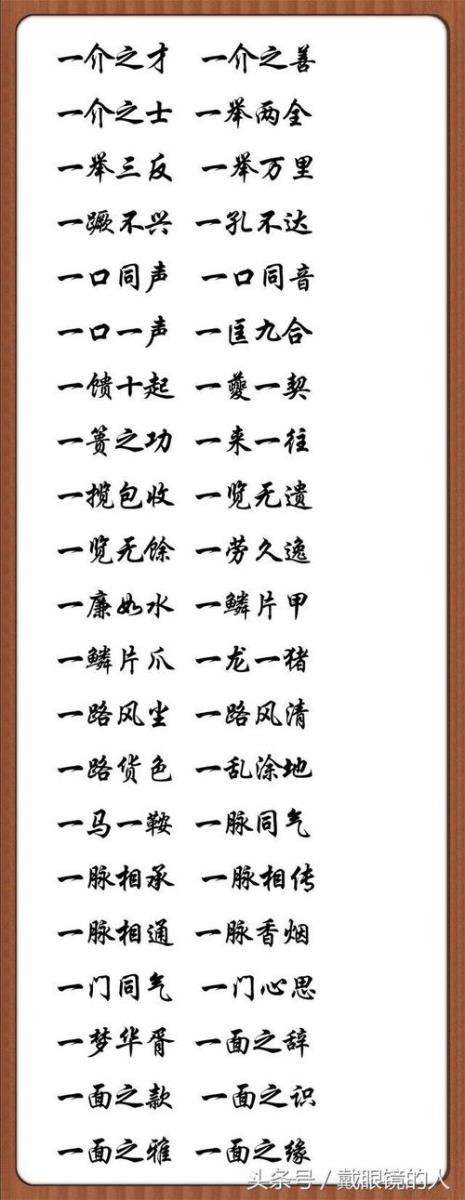 一介之才 一介之善
一介之士 一举两全
一举三反 一举万里
一蹶不兴 一孔不达
一口同声 一口同音
一口一声 一匡九合
一馈十起 一夔一契
一篑之功 一来一往
一揽包收 一览无遗
一览无馀 一劳久逸
一廉如水 一鳞片甲
一鳞片爪 一龙一猪
一路风尘 一路风清
一路货色 一乱涂地
一马一鞍 一脉同气
一脉相承 一脉相传
一脉相通 一脉香烟
一门同气 一门心思
一梦华胥 一面之辞
一面之款 一面之识
一面之雅 一面之缘
头条号/戴眼镜的人